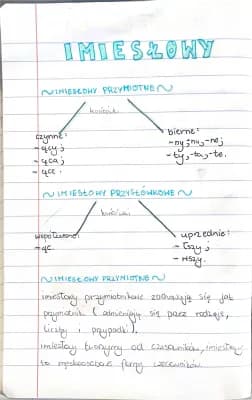 IMIESŁOWY
~IMIESŁOWY PRZYMIOTNE~
końcówki
czynne:
-ący;
-ąca;
-ące.
bierne:
-ny; na; -ne;
-ty, -ta, -te.
~IMIESŁOWY PRZYSŁÓWKOWE~
końcówki
współczesne:
-ąc.
uprzednie:
-łszy;
-wszy.
~IMIESŁOWY PRZYMIOTNE~
imiesłowy przymiotnikowe zachowują się jak
przymiotnik (odmieniają się przez rodzaje,
liczby i przypadki).
imiesłowy tworzymy od czasowników, imiesłowy
to nieosobowe formy czasownika.